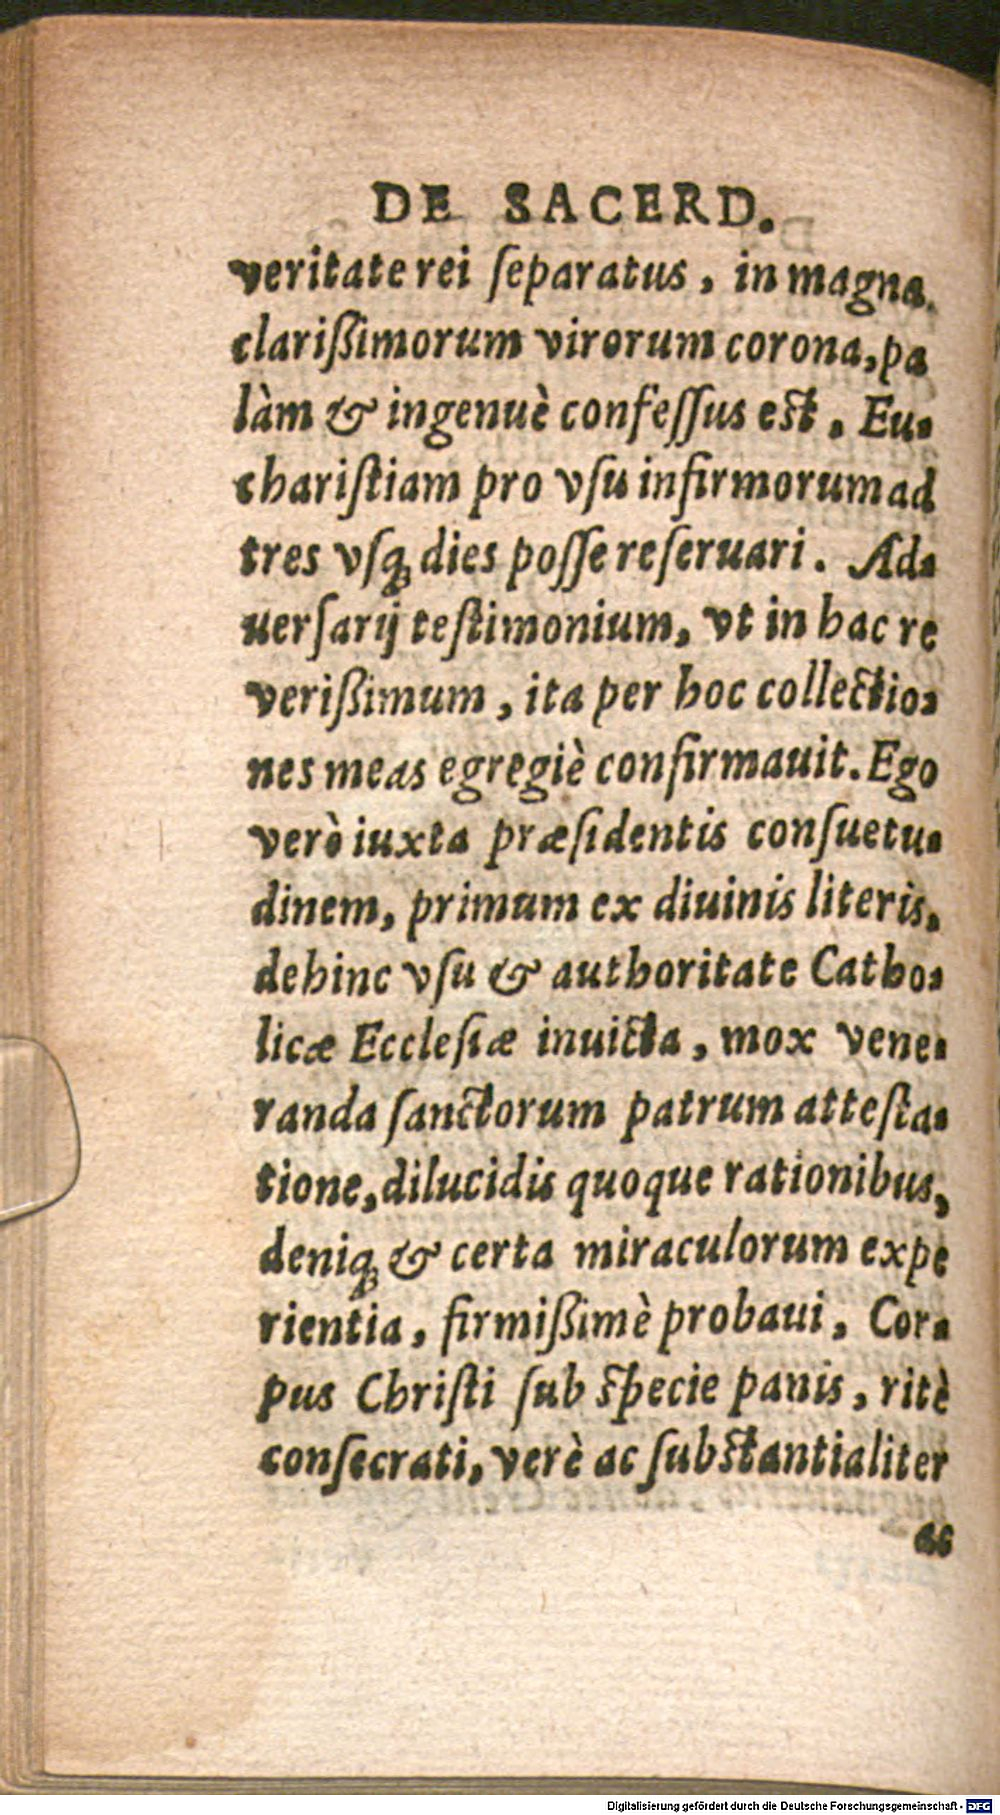 DE SACERD.
veritate rei ſeparatus, in magna
clarißimorum virorum corona, pa
làm & ingenuè confeſſus est. Eu-
chariſtiam pro vſu infirmorum ad
tres vſq́ꝫ dies poſſe reſeruari. Ad-
uerſarij teſtimonium, vt in hac re
verißimum, ita per hoc collectio-
nes meas egregiè confirmauit. Ego
verò iuxta præſidentis conſuetu-
dinem, primum ex diuinis literis,
dehinc vſu & authoritate Catho-
licæ Eccleſiæ inuicta, mox vene-
randa ſanctorum patrum atteſta-
tione, dilucidis quoque rationibus,
deniqꝫ & certa miraculorum expe
rientia, firmißimè probaui, Cor-
pus Chriſti ſub specie panis, ritè
conſecrati, verè ac ſubstantialiter
Digitalisierung gefördert durch die Deutsche Forschungsgemeinschaft - DFG